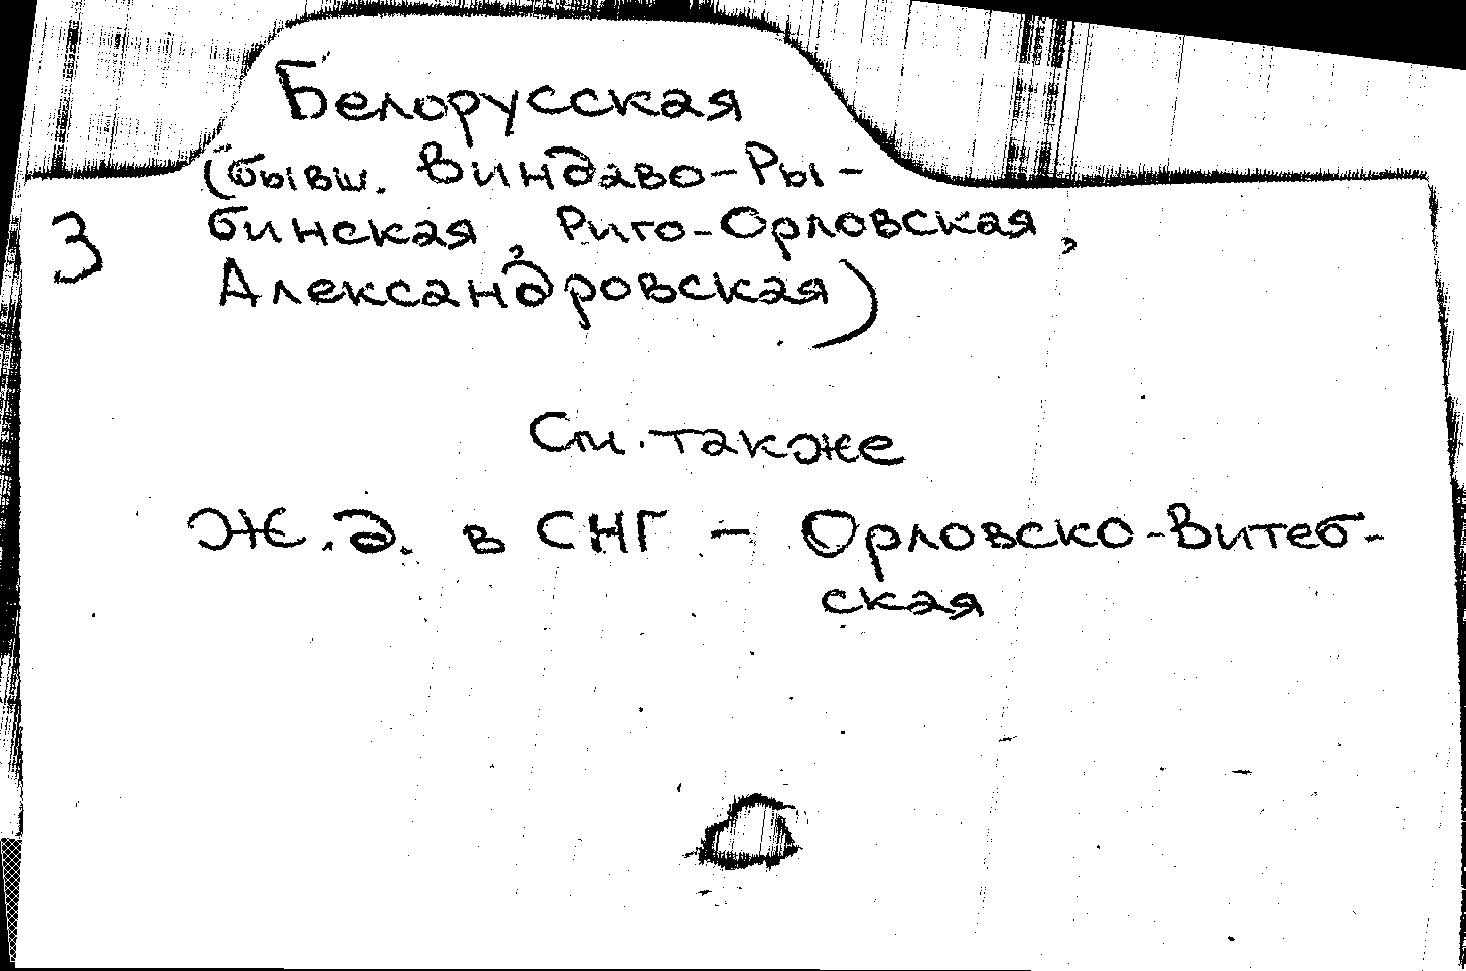 Белорусская
(бывш. Виндаво-Ры-
3 бинская, Риго-Орловская,
Александровская)
См. также
Ж.д. в СНГ - Орловско-Витеб-
ская